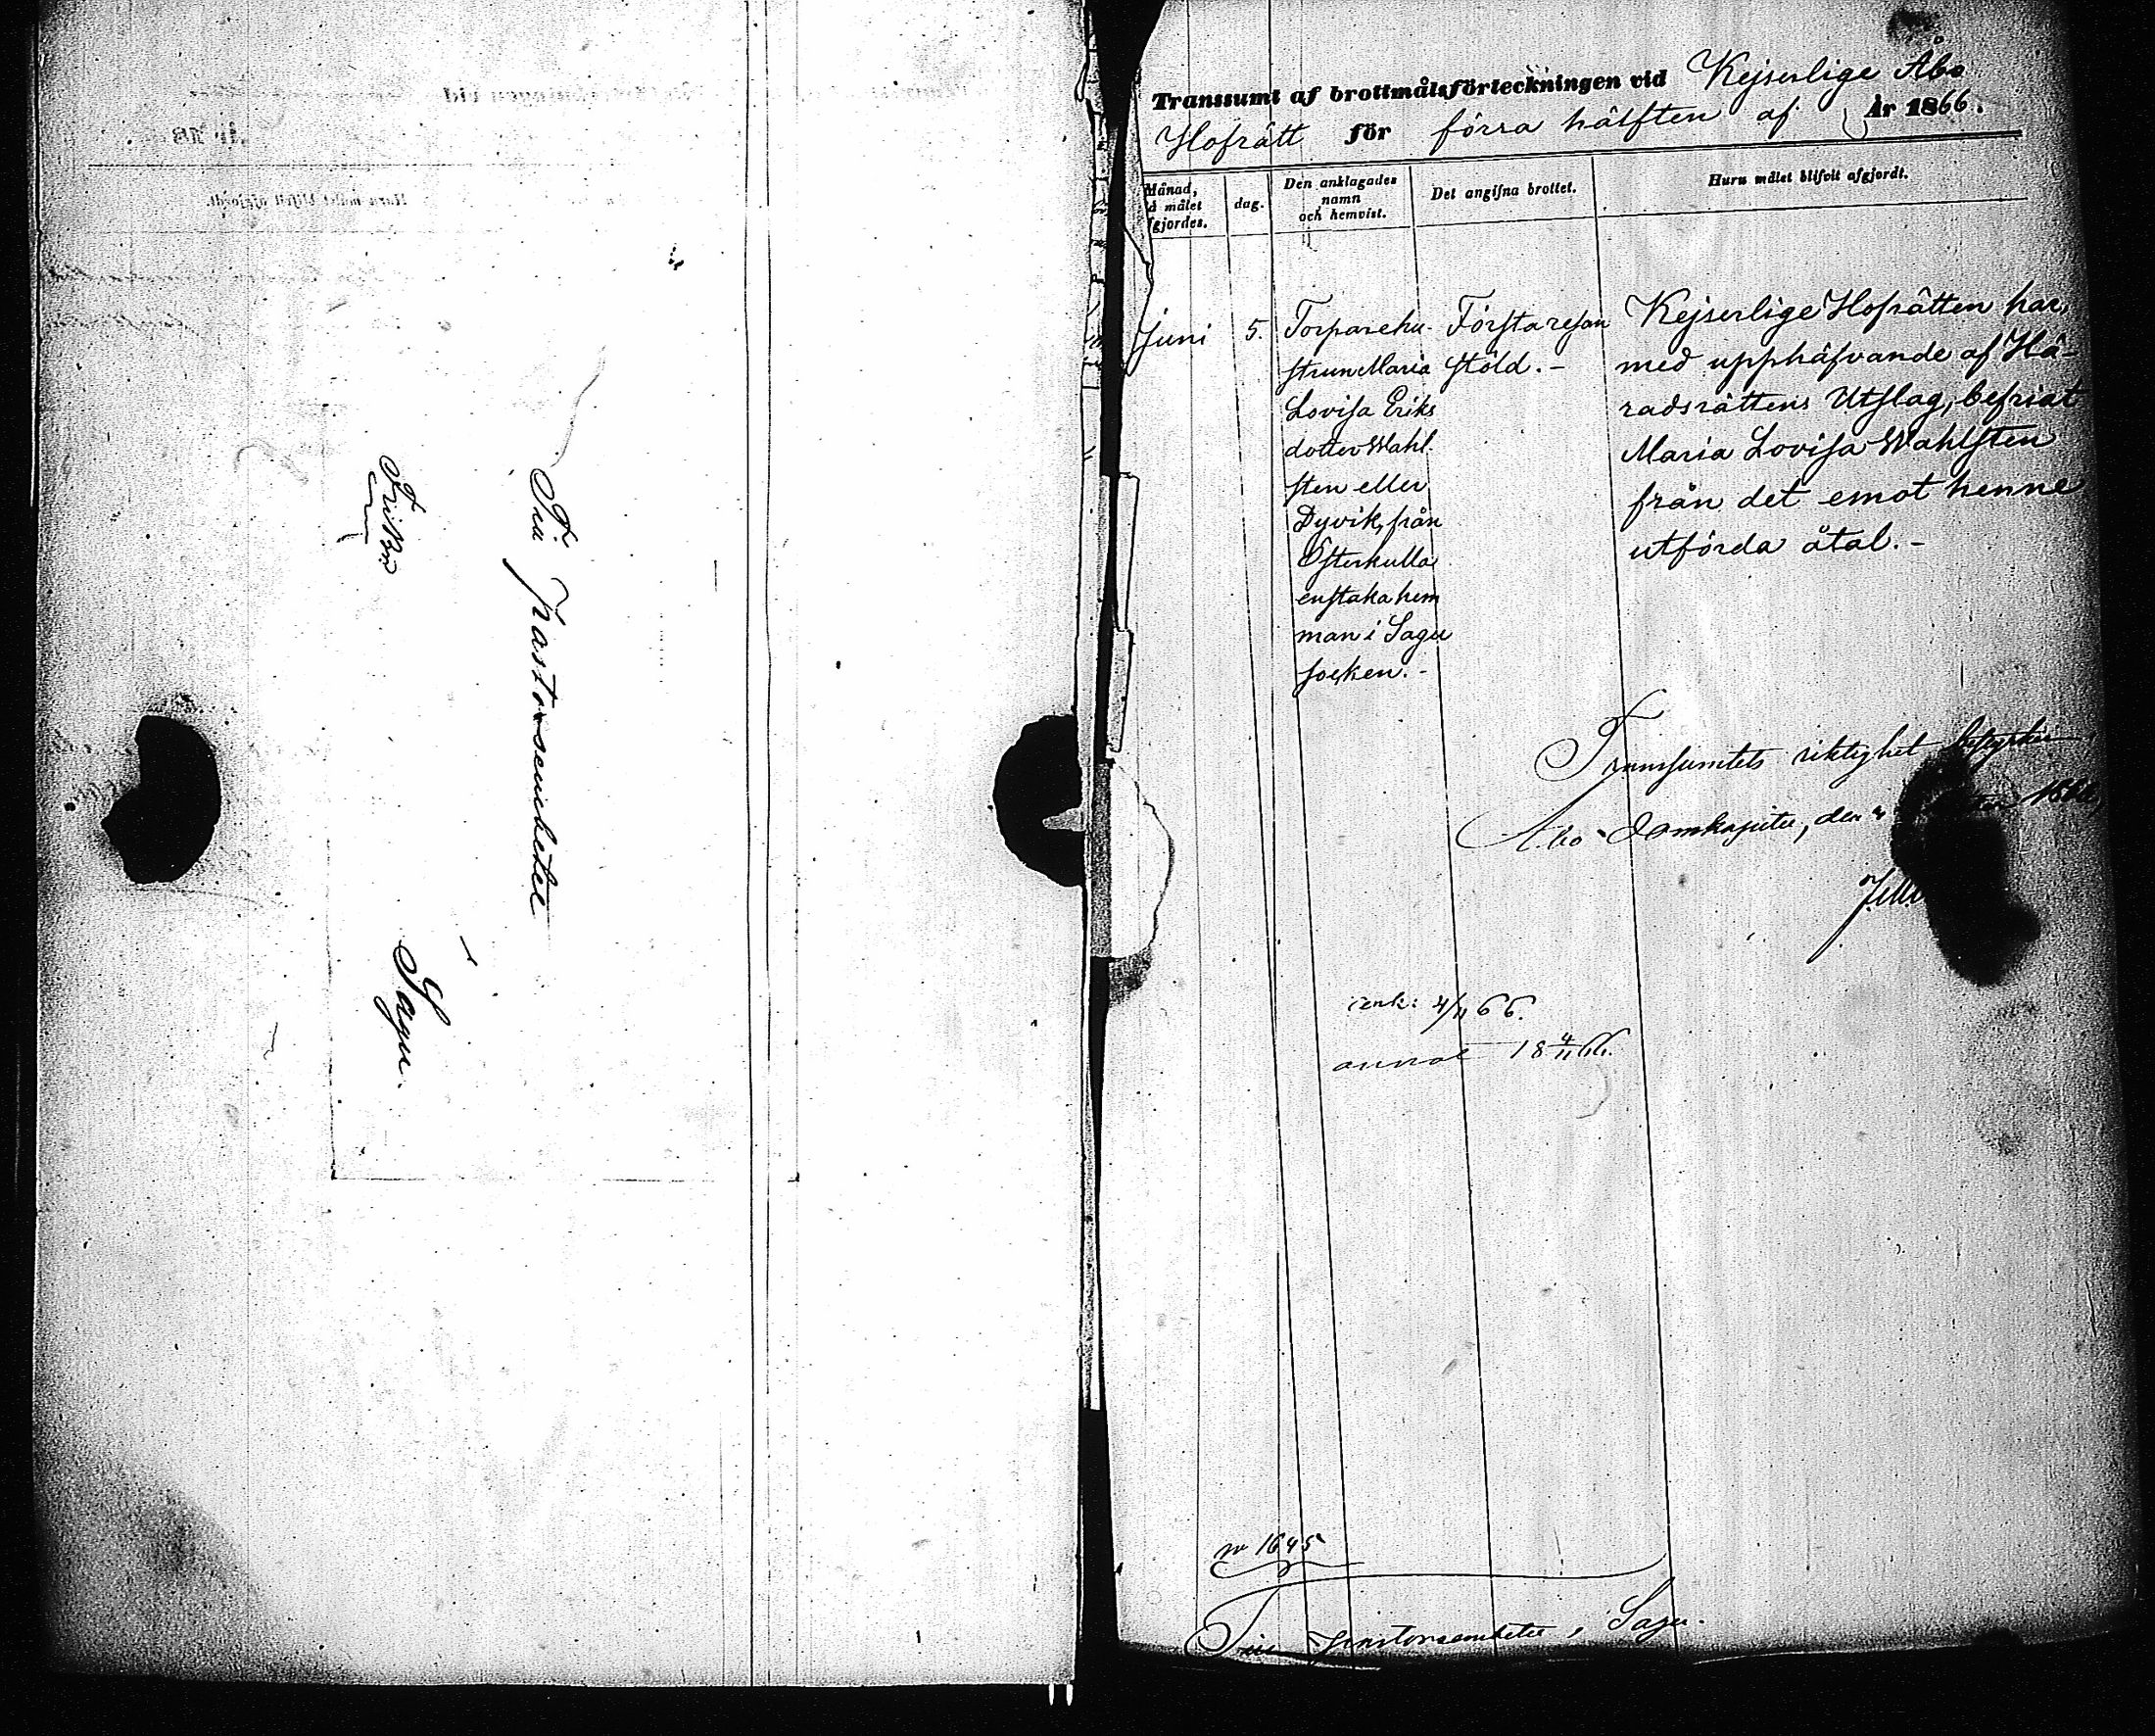 Till Pastorsembetet
i
Fribref
Sagu.
Transsumt af brottmålsförteckningen vid Kejserlige Åbo
Hofrätt för förra hälften af År 1866.
Månad,
å målet
fgjordes.
dag.
Den anklagades
namn
och hemvist.
Det angifna brottet.
Huru målet blifvit afgjordt.
Juni
5.
Torparehu-
strun Maria
Lovisa Eriks
dotter Wahl-
sten eller
Dyvik, från
Österkulla
enstaka hem
man i Sagu
socken. -
Första resan
stöld. -
Kejserlige Hofrätten har,
med upphäfvande af Hä-
radsrättens Utslag, befriat
Maria Lovisa Wahlsten
från det emot henne
utförda åtal. -
Transsumtets riktighet bestyrker
Åbo Domkapitel, den 1866,
ienk: 4/11 66.
annot 18 4/11 66.
No 1645
Till Pastorsembetet i Sagu.